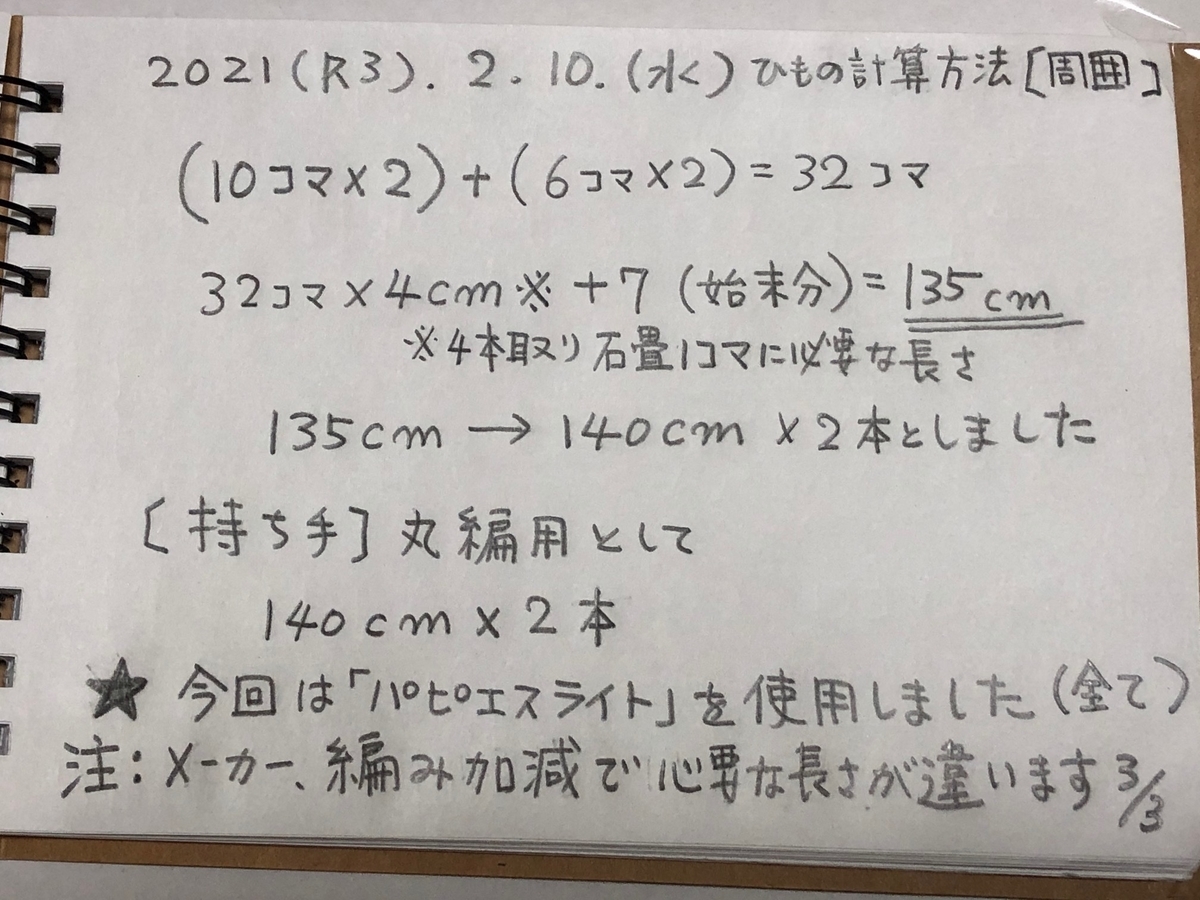 2021(R3). 2. 10. (水) ひもの計算方法[周囲]
(10コマ×2)+(6コマ×2)=32コマ
32コマ×4cm※+7(始末分)=135cm
※4本取り石畳1コマに必要な長さ
135cm→140cm×2本としました
[持ち手]丸編用として
140cm×2本
★今回は「パピエスライト」を使用しました(全て)
注:メーカー、編み加減で必要な長さが違います 3/3